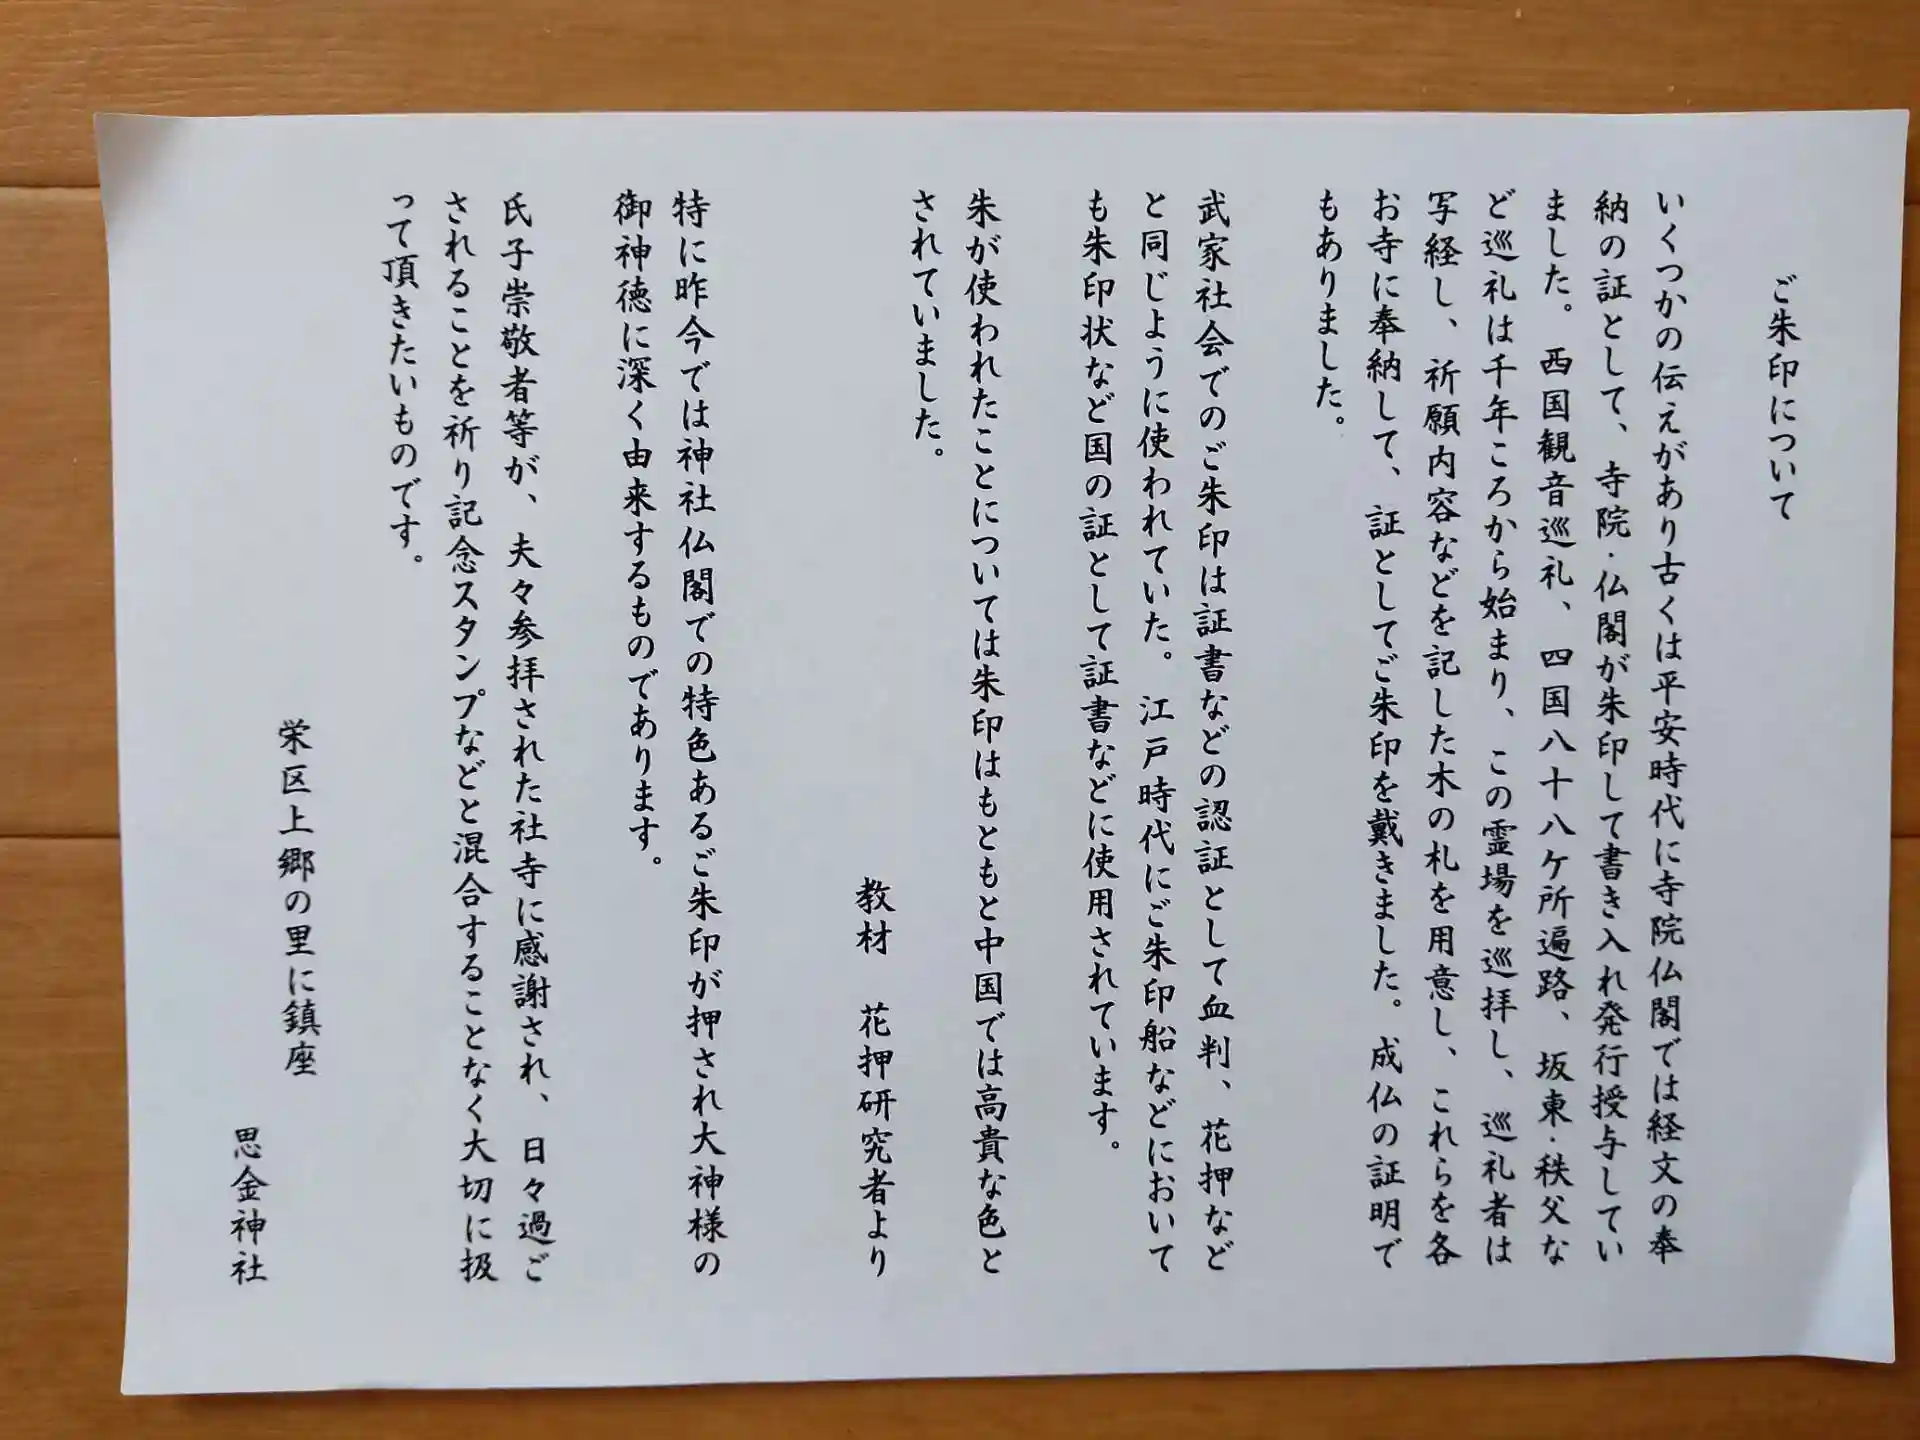 ご朱印について
いくつかの伝えがあり古くは平安時代に寺院仏閣では経文の奉
納の証として、寺院・仏閣が朱印して書き入れ発行授与してい
ました。西国観音巡礼、四国八十八ケ所遍路、坂東・秩父な
ど巡礼は千年ころから始まり、この霊場を巡拝し、巡礼者は
写経し、祈願内容などを記した木の札を用意し、これらを各
お寺に奉納して、証としてご朱印を戴きました。成仏の証明で
もありました。
武家社会でのご朱印は証書などの認証として血判、花押など
と同じように使われていた。江戸時代にご朱印船などにおいて
も朱印状など国の証として証書などに使用されています。
朱が使われたことについては朱印はもともと中国では高貴な色と
されていました。
教材　花押研究者より
特に昨今では神社仏閣での特色あるご朱印が押され大神様の
御神徳に深く由来するものであります。
氏子崇敬者等が、夫々参拝された社寺に感謝され、日々過ご
されることを祈り記念スタンプなどと混合することなく大切に扱
って頂きたいものです。
栄区上郷の里に鎮座
思金神社